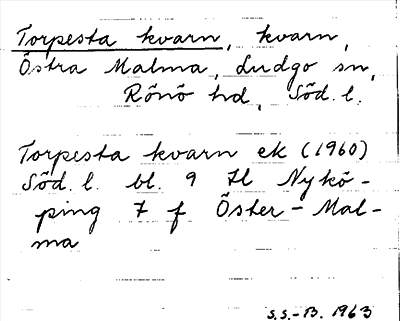 Torpesta kvarn, kvarn,
Östra Malma, Ludgo sn,
Rönö hd, Söd. l.
Torpesta kvarn ek (1960)
Söd. l. bl. 9 Il Nykö-
ping 7 f Öster-Mal-
ma
S.S.-B. 1963